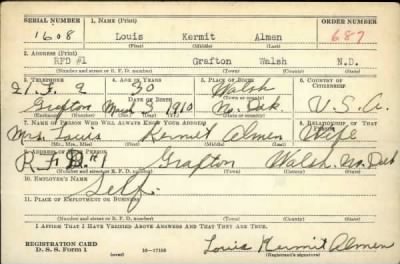 SERIAL NUMBER 1. NAME (Print) ORDER NUMBER
1608 Louis Kermit Almen 687
(First) (Middle) (Last)
2. ADDRESS (Print)
RFD #1 Grafton Walsh N.D.
(Number and street or R. F. D. number) (Town) (County) (State)
3. TELEPHONE 4. AGE IN YEARS 5. PLACE OF BIRTH 6. COUNTRY OF CITIZENSHIP
21. F. 2 30 Walsh
DATE OF BIRTH (Town or county)
Grafton 1910 No. Dak. U.S.A.
(Exchange) (Number) (Mo.) (Day) (Yr.) (State or country)
7. NAME OF PERSON WHO WILL ALWAYS KNOW YOUR ADDRESS 8. RELATIONSHIP OF THAT PERSON
Mrs. Louis Kermit Almen Wife
(Mr., Mrs., Miss) (First) (Middle) (Last)
9. ADDRESS OF THAT PERSON
R.F.D. #1 Grafton Walsh No. Dak
(Number and street or R. F. D. number) (Town) (County) (State)
10. EMPLOYER'S NAME
Self.
11. PLACE OF EMPLOYMENT OR BUSINESS
(Number and street or R. F. D. number) (Town) (County) (State)
I AFFIRM THAT I HAVE VERIFIED ABOVE ANSWERS AND THAT THEY ARE TRUE.
REGISTRATION CARD
D. S. S. Form 1 (over) 16-17105 Louis Kermit Almen
(Registrant's signature)